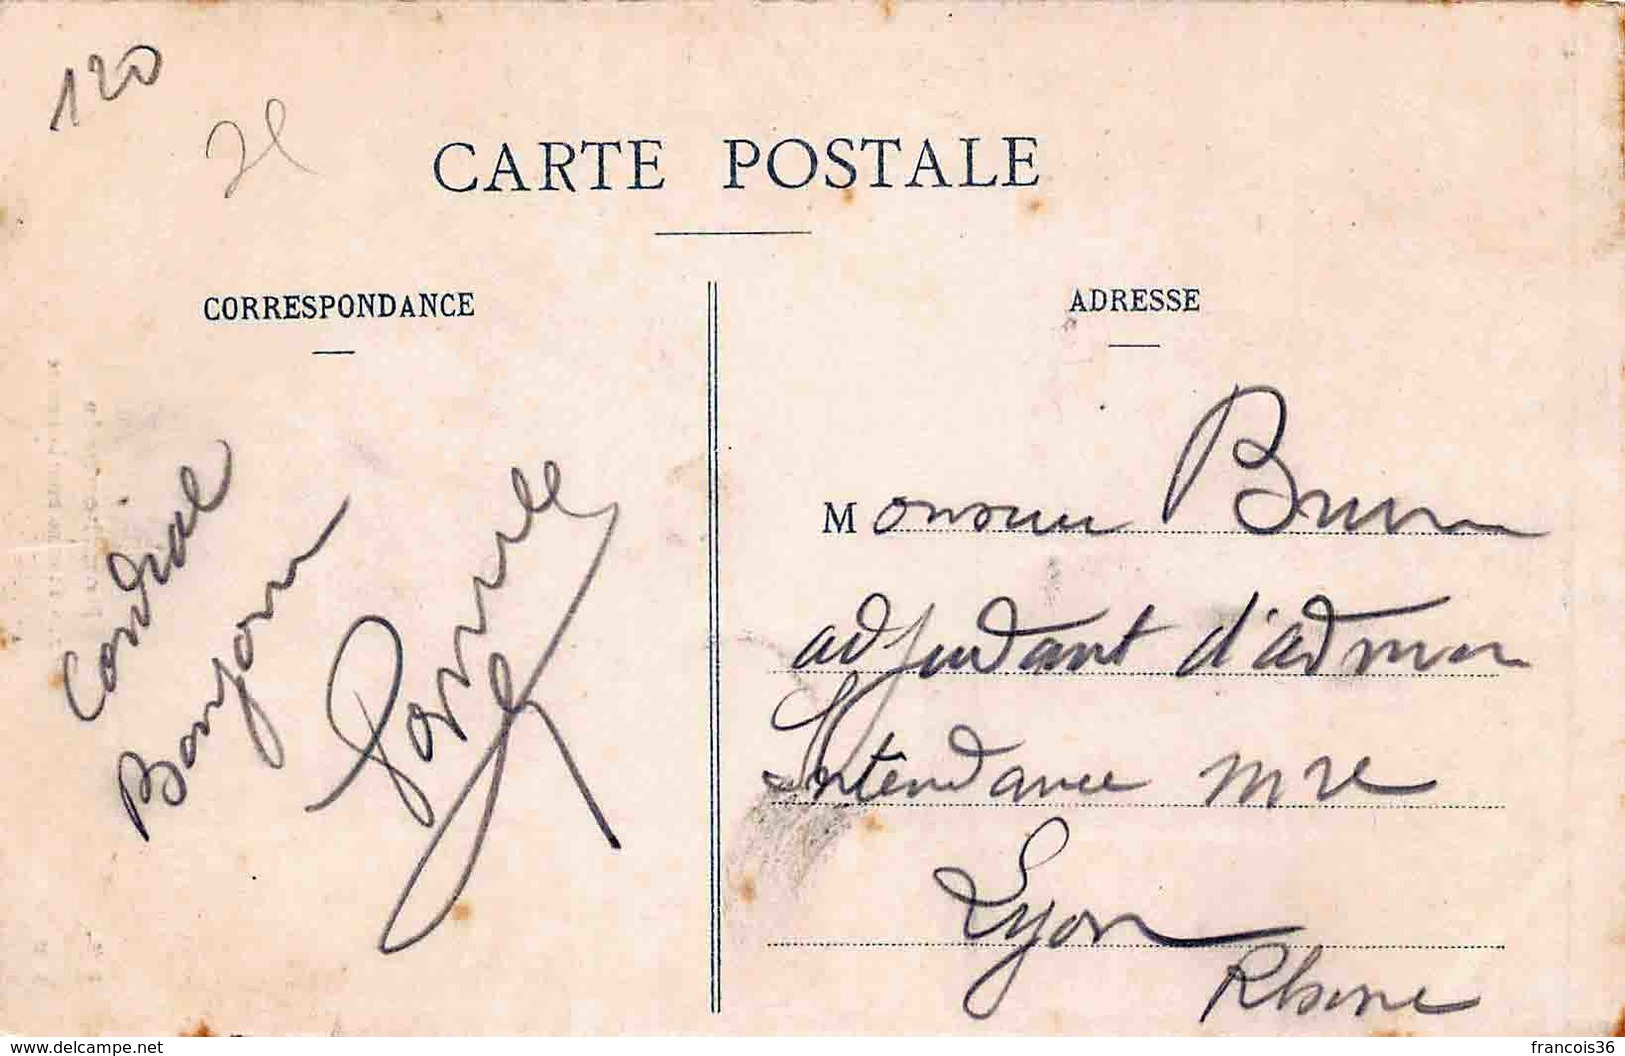 120
CARTE POSTALE
CORRESPONDANCE
Cordial
Bonjour
ADRESSE
Monsieur Brun
adjudant d'admon
Intendance mre
Lyon
Rhone
www.delcampe.net
francois36